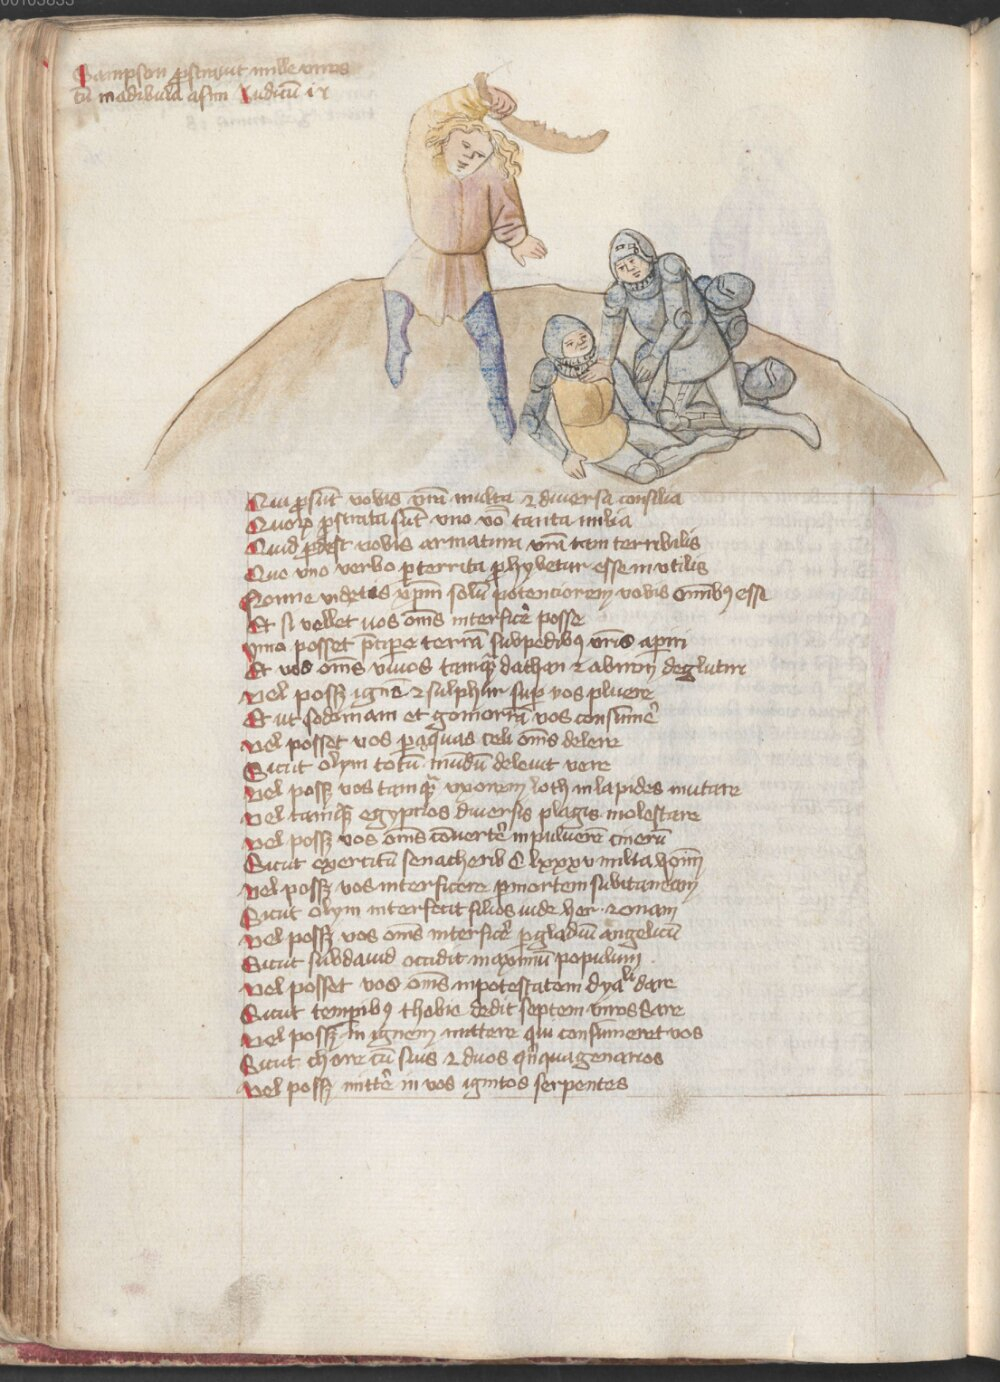 00103835
Sampson ꝓstravit mille viros
cū mādibula asini Judicū ix
Qui ꝓsūt vobis vr̄a multa ⁊ diversa consilia
Quorꝝ ꝓstrata sūt uno vō tanta milia
Quid ꝓdest vobis armatura vr̄a tam terribilis
Que uno verbo ꝑterrita ꝓhybetur esse inutilis
Nonne videtis xp̄m solū potenciorem vobis om̄ibꝰ esse
Et si vellet vos om̄s interficē posse
ymo posset p̄cipe terrā sub pedibꝰ vr̄is apiri
Et vos om̄s vivos tamqͣ dathan ⁊ abiron deglutiri
Vel possꝫ ignē ⁊ sulphur suꝑ vos pluere
Et ut sodomam et gomorrā vos consumē
Vel posset vos ꝑ aquas celi om̄s delere
Sicut olym totū mūdū delevit vere
Vel possꝫ vos tamqͣ uxorem loth in lapides mutare
Vel tamqͣ egyptios diversis plagis molestare
Vel possꝫ vos om̄s cōvertē in pulverē cinerū
Sicut exercitū senacherib C lxxxv milia hom̄
Vel possꝫ vos interficere ꝑ mortem subitaneam
Sicut olym interfecit filios iude her ⁊ onam
Vel possꝫ vos om̄s interficē ꝑ gladiū angelicū
Sicut sub david occidit maximū populum
Vel posset vos om̄s in potestatem dyali dare
Sicut temporibꝰ thobie dedit septem viros Sare
Vel possꝫ in ignem mittere qui consumeret vos
Sicut chore cū suis ⁊ duos qͥnquagenarios
Vel possꝫ mittē in vos ignitos serpentes